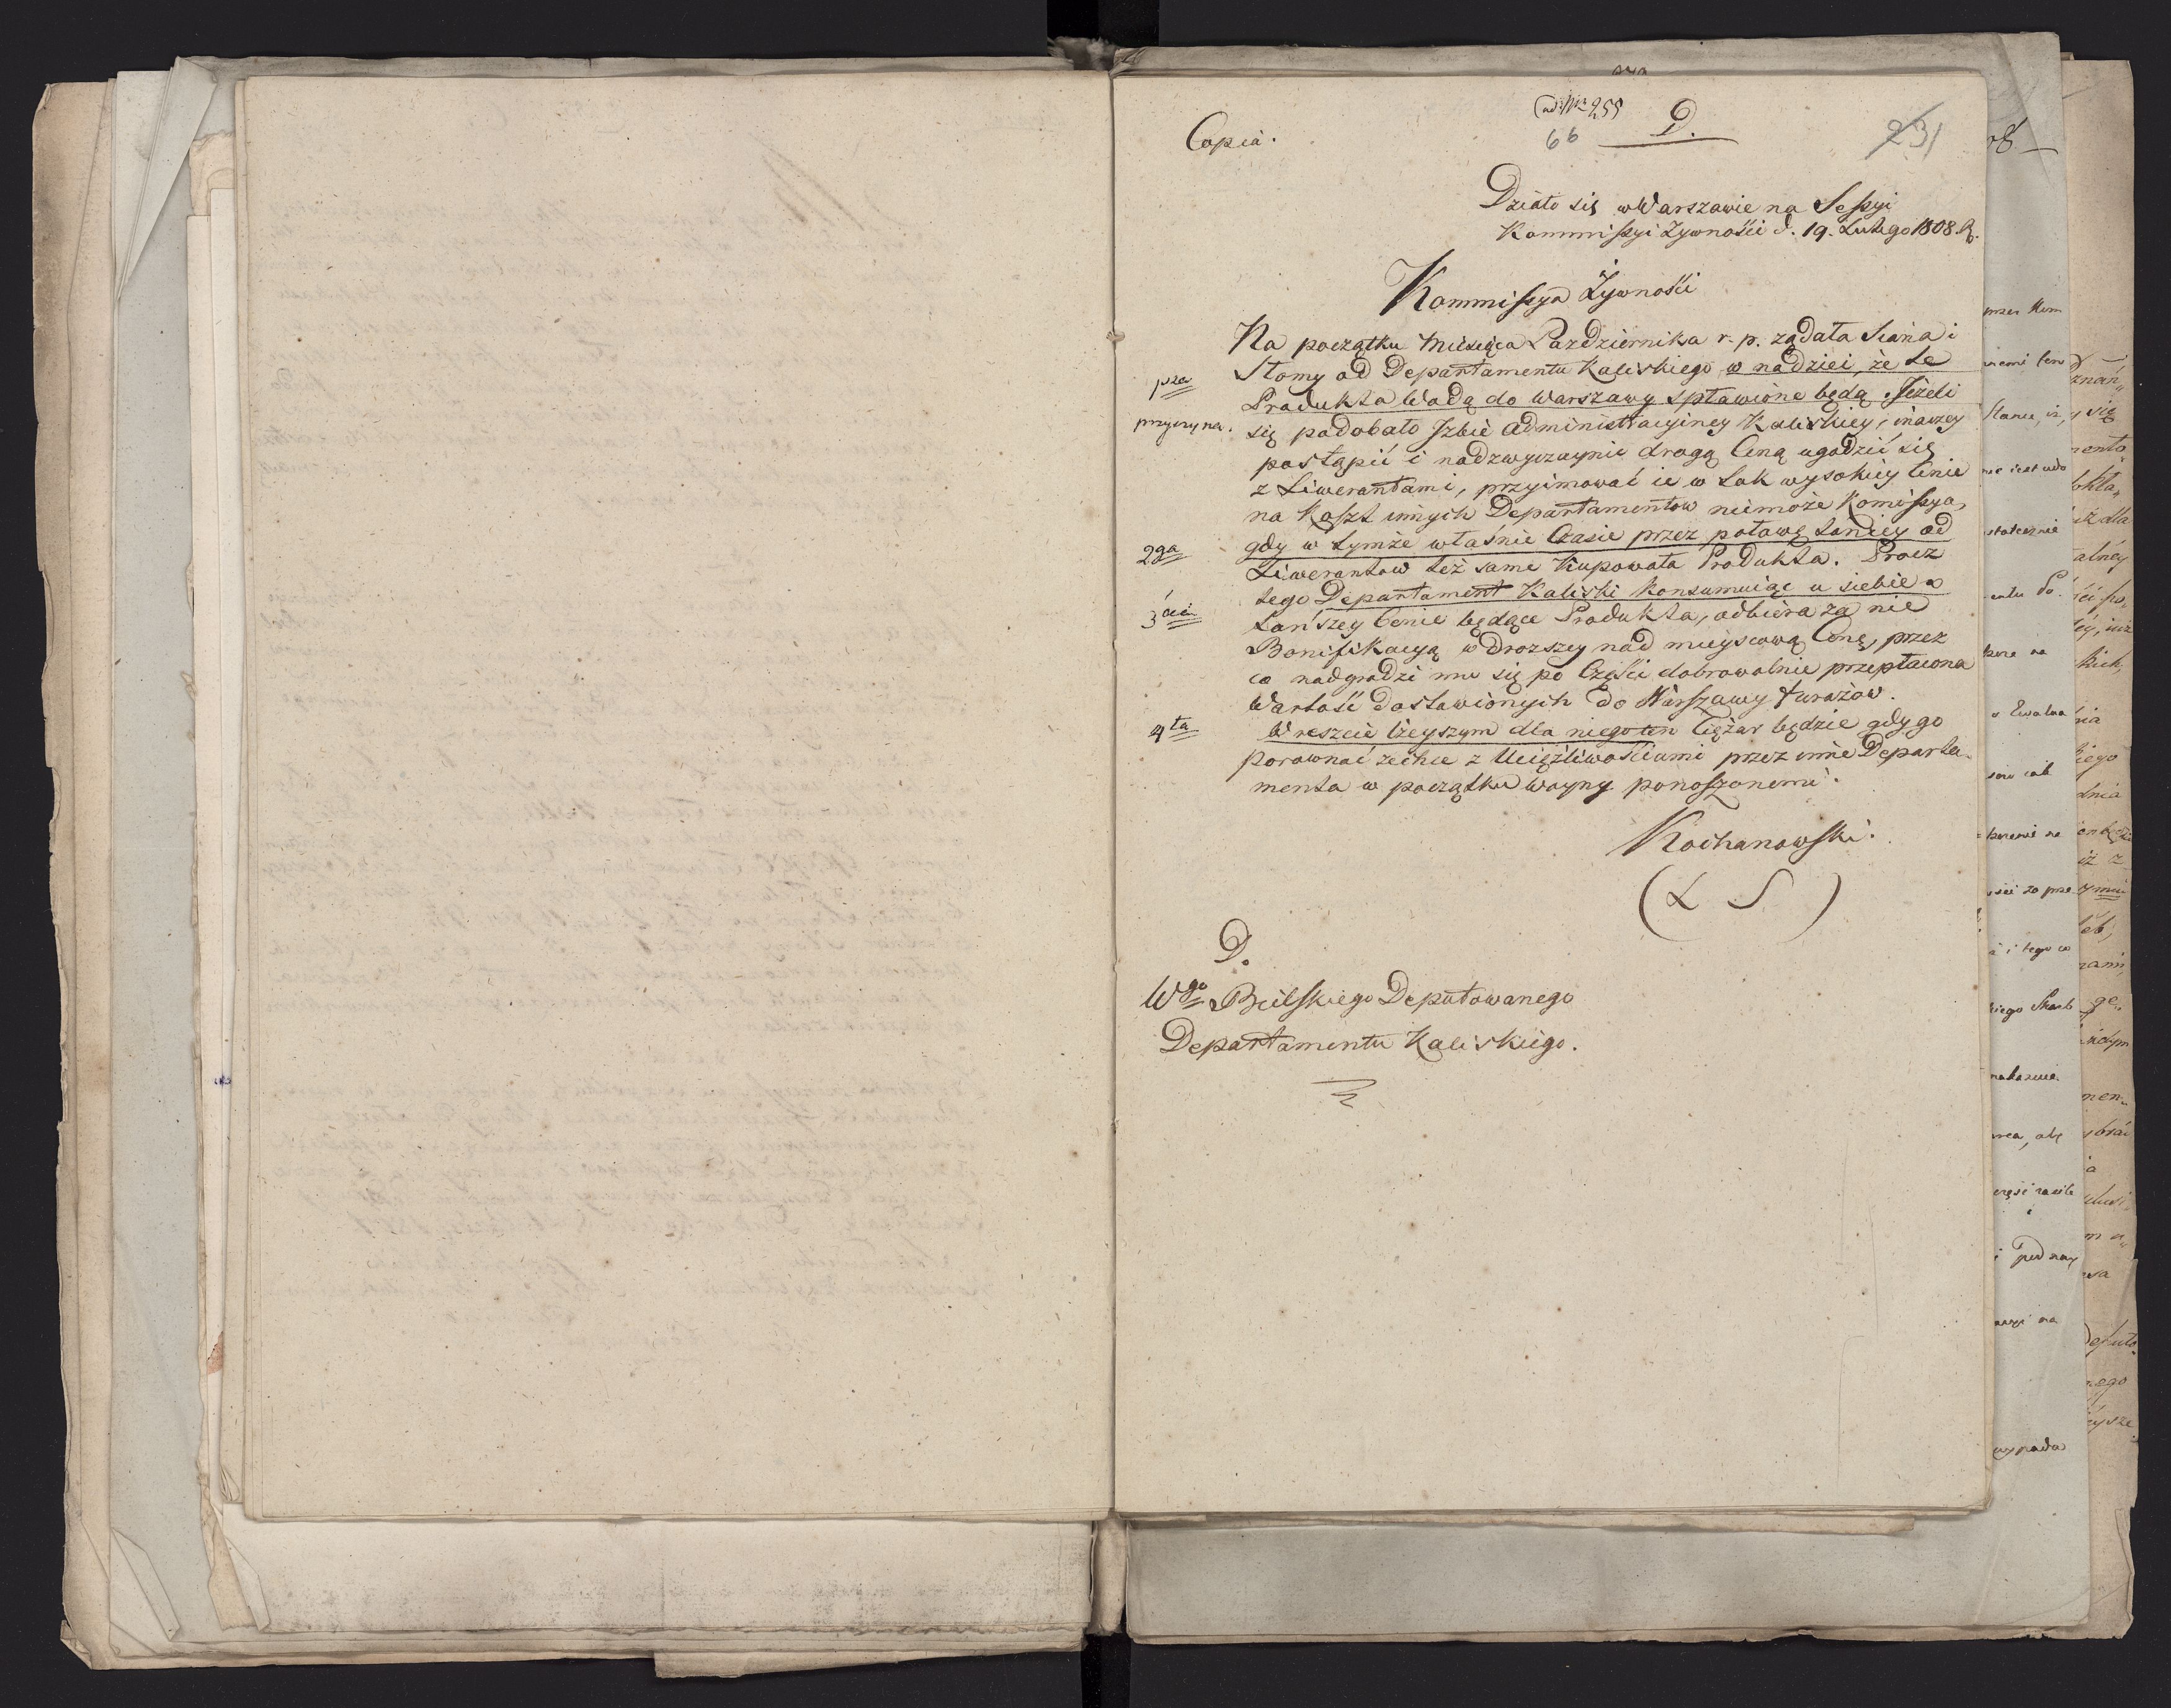 (ad Nr 255
Copia.
66
D.
231
Działo się w Warszawie na Sessyi
Kommissyi Żywności d. 19. Lutego 1808 R.
Kommissya Żywności
Na początku Miesiąca Pazdziernika r. p. ządała Siana i
Słomy od Departamentu Kaliskiego w nadziei, że te
pza
Produkta Wodą do Warszawy spławione będą. Jeżeli
przyczyna.
się podobało Izbie Administracyiney Kaliskiey, inaczey
postąpić i nadzwyczaynie drogą Ceną ugodzić się
z Liwerantami, przyimować ie w tak wysokiey Cenie
na Koszt innych Departamentow niemoże Komissya,
2ga
gdy w tymże właśnie Czasie przez połowę taniey od
Liwerantow też same kupowała Produkta. Procz
3cia
tego Departament Kaliski konsumuiąc u siebie w
tańszey Cenie będące Produkta, odbiera za nie
Bonifikacyą w drozszey nad mieyscową Cenę, przez
co nadgrodzi mu się po Części dobrowolnie przepłacona
Wartość dostawionych do Warszawy furażow.
4ta
Wreszcie lżeyszym dla niego ten Ciężar będzie gdy go
porownać zechce z Uciążliwościami przez inne Departa-
menta w początku woyny ponoszonemi.
Kochanowski.
(L S)
D.
Wgo Bielskiego Deputowanego
Departamentu Kaliskiego.